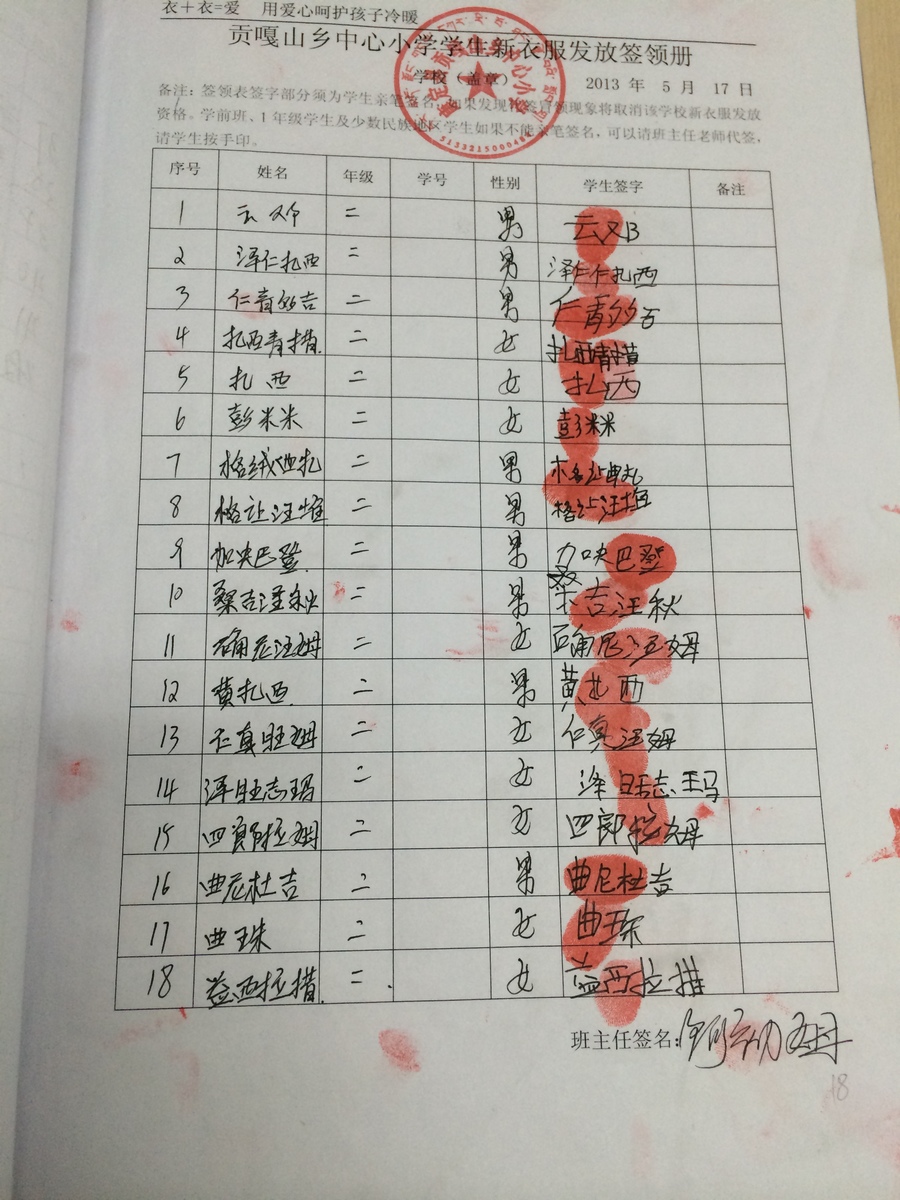 衣＋衣=爱 用爱心呵护孩子冷暖
贡嘎山乡中心小学学生新衣服发放签领册
学校（盖章） 2013 年 5 月 17 日
备注：签领表签字部分须为学生亲笔签名，如果发现代签冒领现象将取消该学校新衣服发放
资格。学前班、1年级学生及少数民族地区学生如果不能亲笔签名，可以请班主任老师代签，
请学生按手印。
5133215000484
序号 姓名 年级 学号 性别 学生签字 备注
1 二 男
2 泽仁扎西 二 男 泽仁仁扎西
3 二 男
4 扎西青措 二 女 扎西青措
5 扎西 二 女 扎西
6 彭米米 二 女 彭米米
7 二 男
8 格让汪堆 二 男 格让汪堆
9 加央巴登 二 男 加央巴登
10 桑吉汪秋 二 男 桑吉汪秋
11 确尼汪姆 二 女 确尼汪姆
12 黄扎西 二 男 黄扎西
13 仁真旺姆 二 女 仁真汪姆
14 泽旺志玛 二 女 泽旺志玛
15 四郎拉姆 二 女 四郎拉姆
16 曲尼杜吉 二 男 曲尼杜吉
17 曲珠 二 女 曲珠
18 益西拉措 二 女 益西拉措
班主任签名：
18